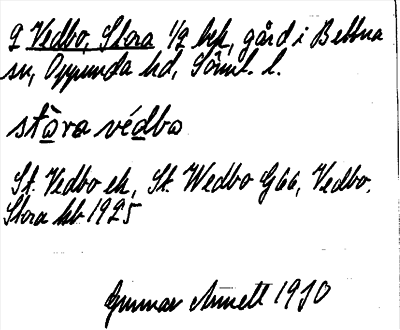 2 Vedbo, Stora 1/2 hek, gård i Bettna
sn, Oppunda hd, Söml. l.
stòra védba
St. Vedbo ek, St. Wedbo G66, Vedbo,
Stora kb 1925
Gunnar Linnell 1930